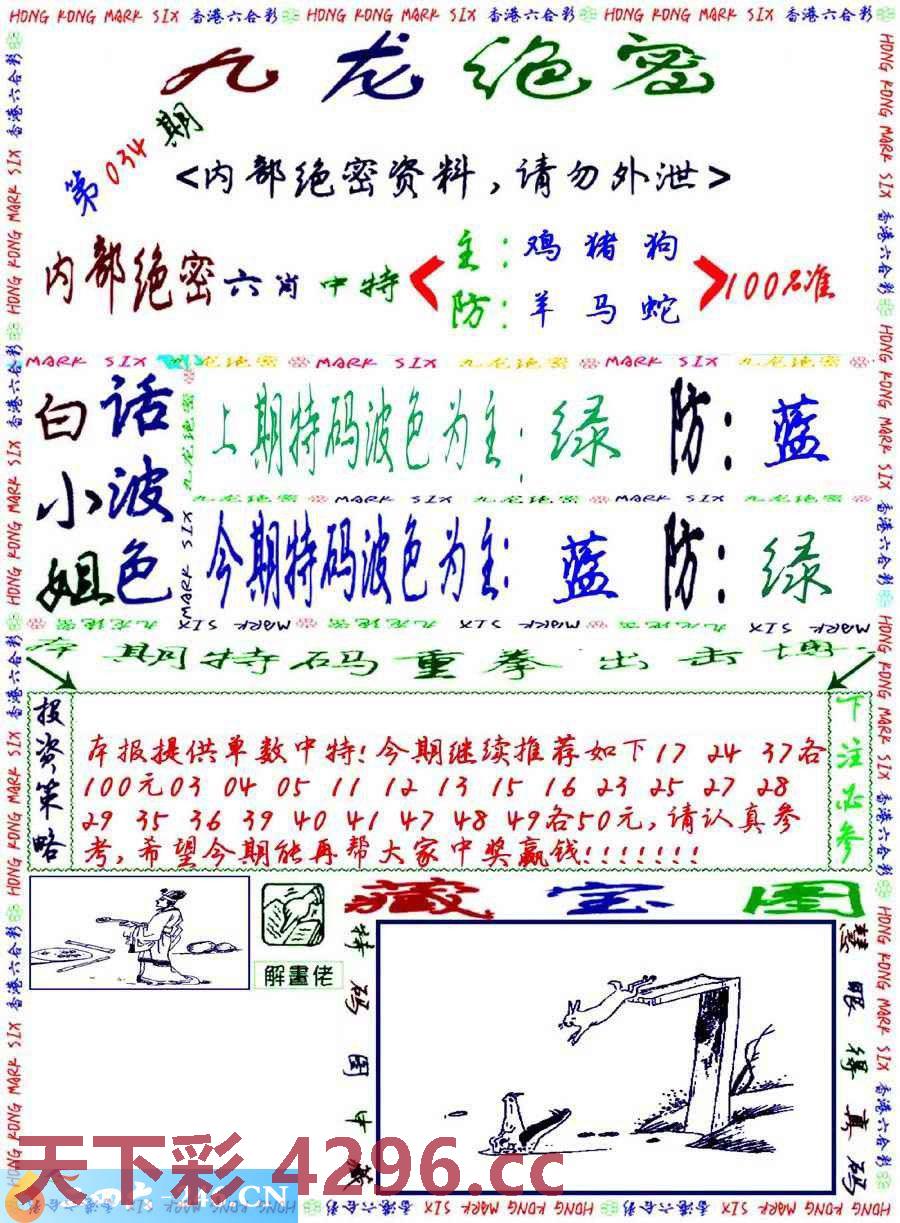 HONG KONG MARK SIX 香港六合彩 HONG KONG MARK SIX 香港六合彩 HONG KONG MARK SIX 香港六合彩
九龙绝密
第034期
<内部绝密资料,请勿外泄>
内部绝密六肖中特
主:鸡猪狗
防:羊马蛇
100%准
MARK SIX 九龙绝密 MARK SIX 九龙绝密 MARK SIX 九龙绝密
白话
小波
姐色
上期特码波色为主:绿 防:蓝
九龙绝密 MARK SIX 九龙绝密 MARK SIX 九龙绝密
今期特码波色为主:蓝 防:绿
MARK SIX 九龙绝密 MARK SIX 九龙绝密 MARK SIX 九龙绝密
本期特码重拳出击
投资策略
本报提供单数中特!今期继续推荐如下17 24 37各
100元03 04 05 11 12 13 15 16 23 25 27 28
29 35 36 39 40 41 47 48 49各50元,请认真参
考,希望今期能再帮大家中奖赢钱!!!!!!!
下注必参
解畫佬
藏宝图
特码图中
慧眼得真码
天下彩4296.cc
HONG KONG MARK SIX 香港六合彩